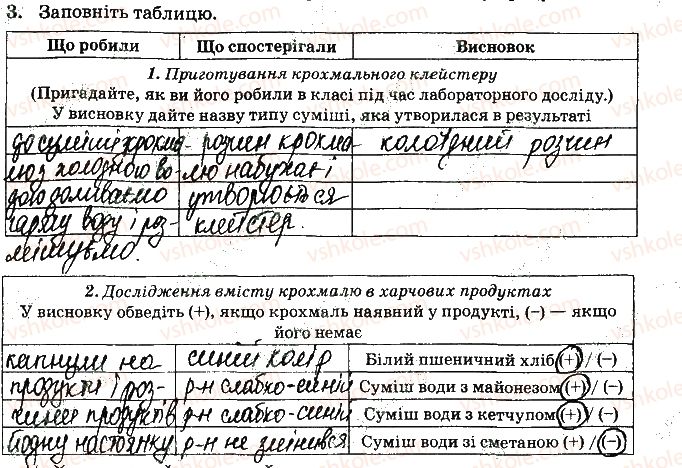 3. Заповніть таблицю.
Що робили Що спостерігали Висновок
1. Приготування крохмального клейстеру
(Пригадайте, як ви його робили в класі під час лабораторного досліду.)
У висновку дайте назву типу суміші, яка утворилася в результаті
до суміші крохма- розчин крохма- колоїдний розчин
лю з холодною во- лю набухає і
дою доливаємо утворюється
гарячу воду і роз- клейстер.
мішуємо.
2. Дослідження вмісту крохмалю в харчових продуктах
У висновку обведіть (+), якщо крохмаль наявний у продукті, (–) — якщо
його немає
капнули на синій колір Білий пшеничний хліб (+) / (–)
продукти і роз- р-н слабко-синій Суміш води з майонезом (+) / (–)
чини продуктів р-н слабко-синій Суміш води з кетчупом (+) / (–)
йодну настоянку р-н не змінився Суміш води зі сметаною (+) / (–)
vshkole.com